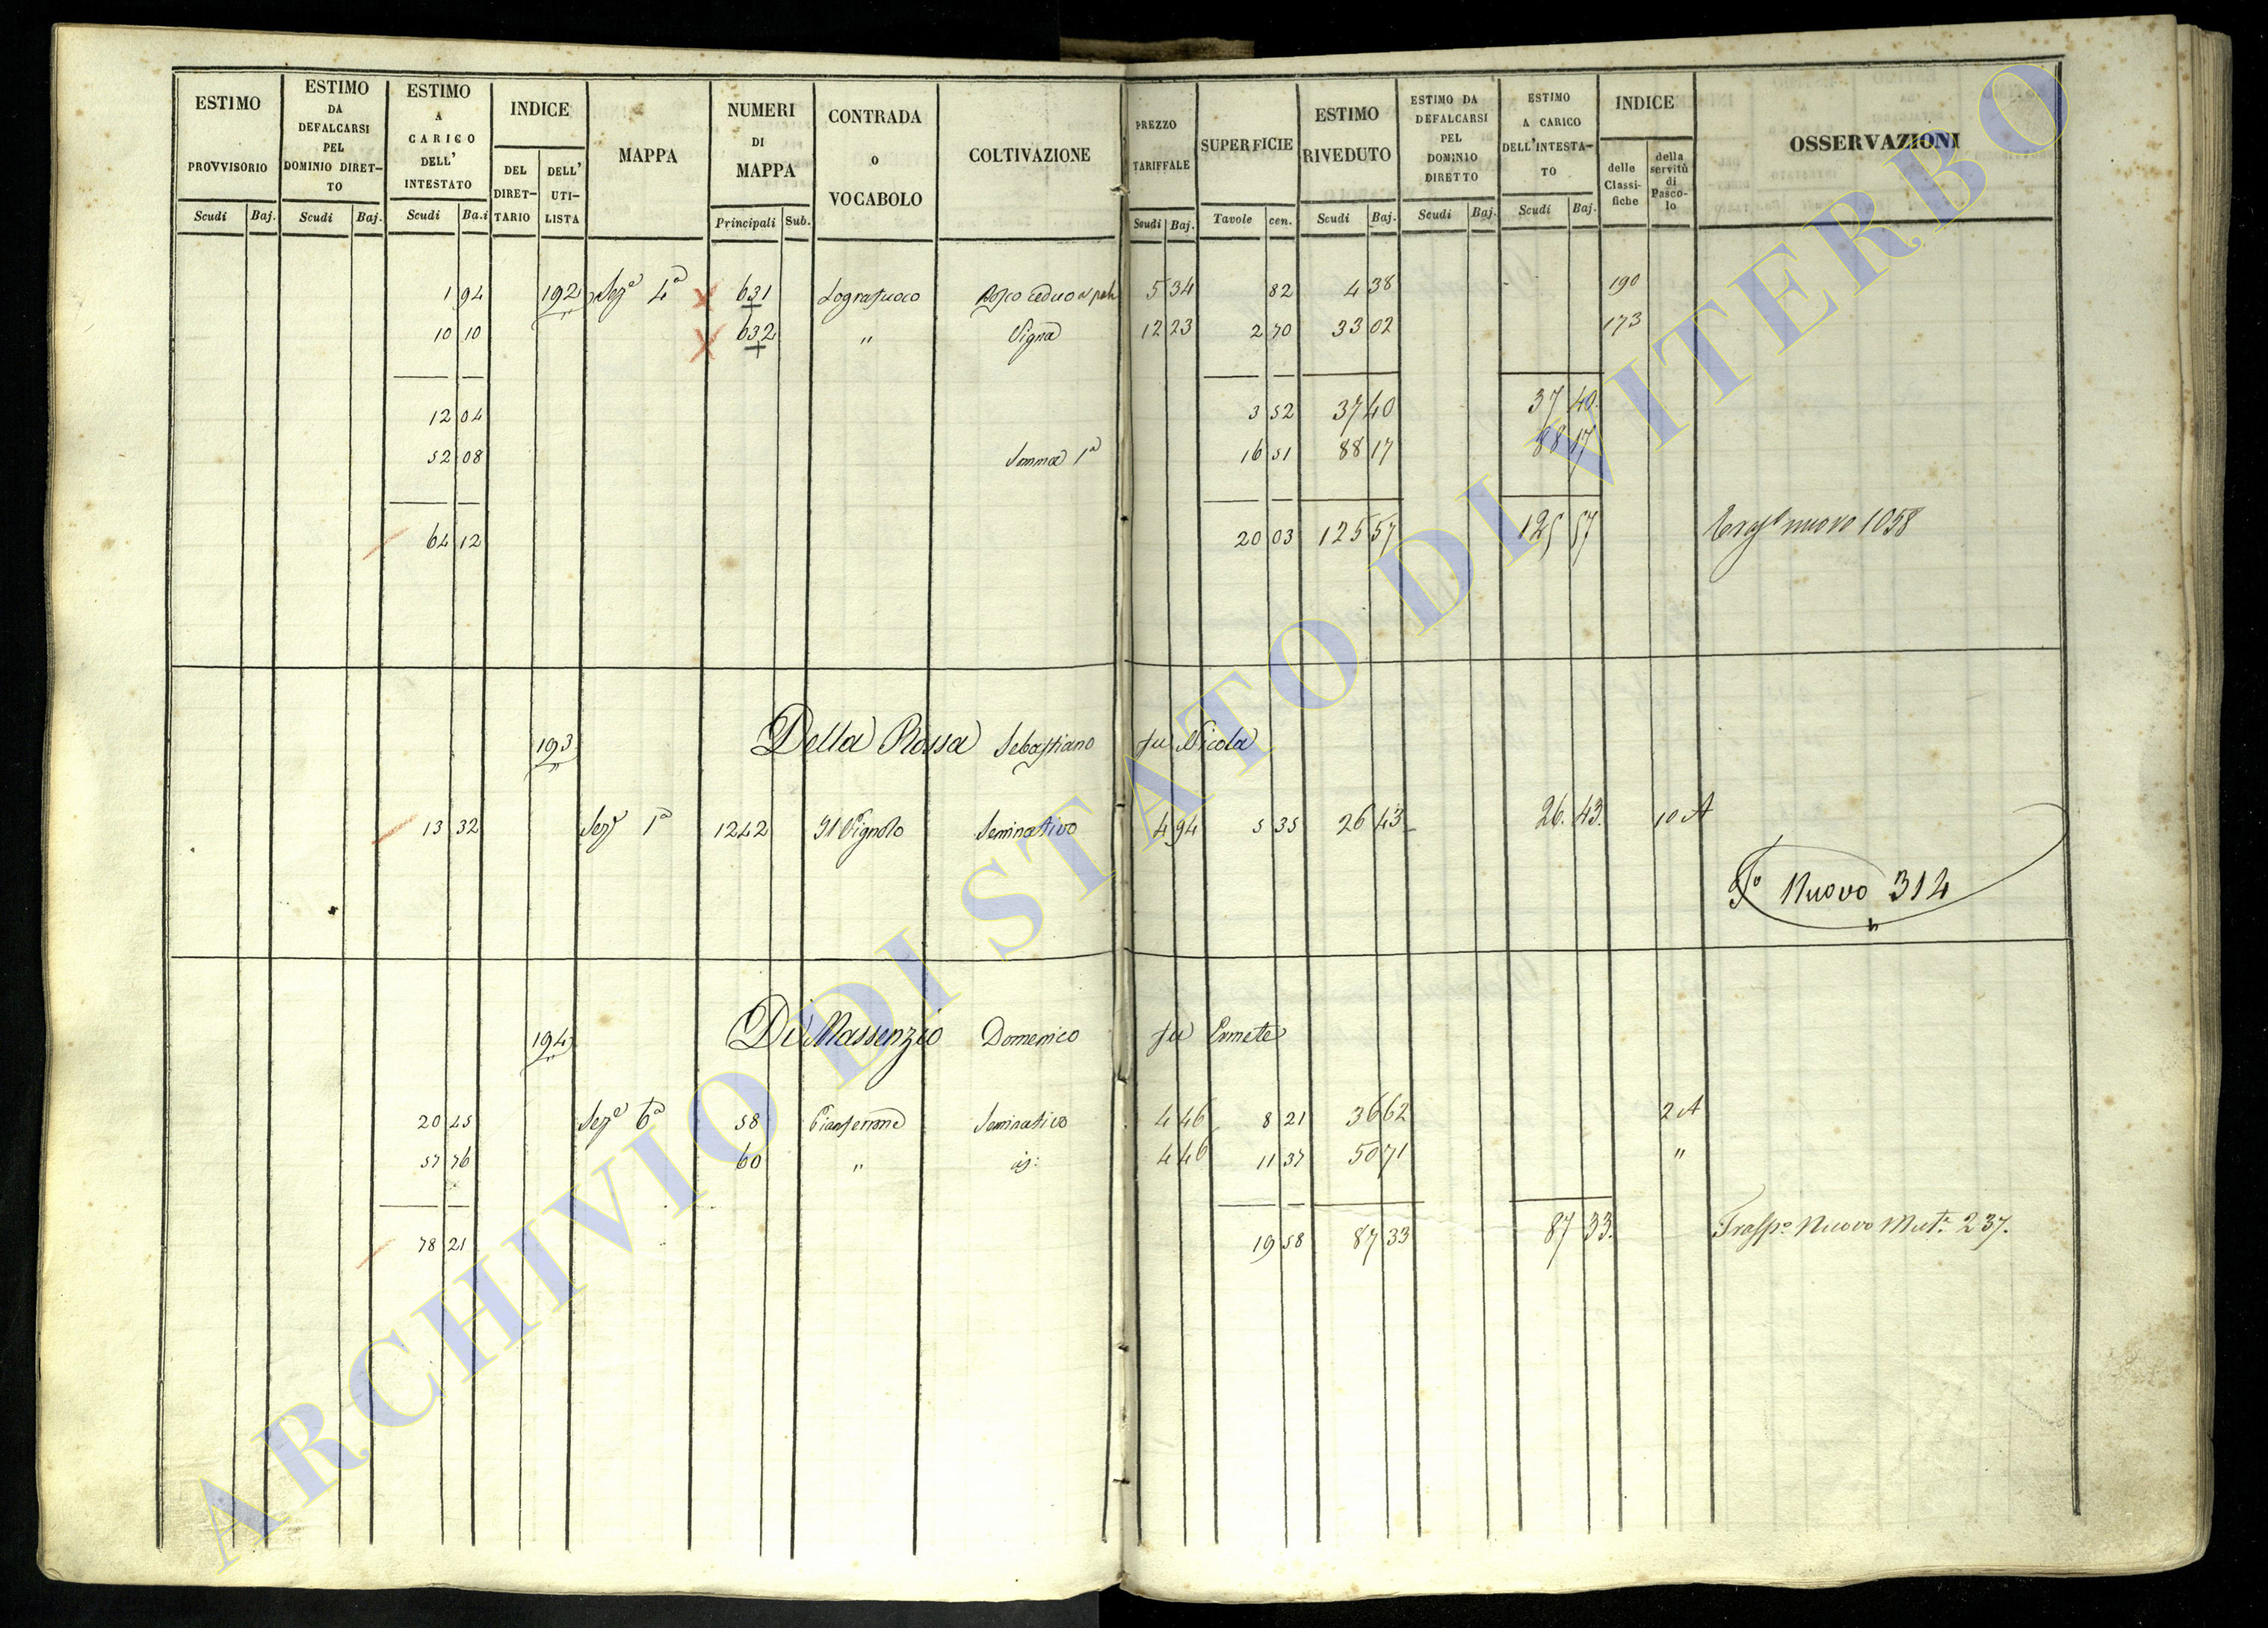 ESTIMO PROVVISORIO
Scudi Baj.
ESTIMO DA DEFALCARSI PEL DOMINIO DIRETTO
Scudi Baj.
ESTIMO A CARICO DELL' INTESTATO
Scudi Ba.i
INDICE
DEL DIRETTARIO
DELL' UTILISTA
MAPPA
NUMERI DI MAPPA
Principali Sub.
CONTRADA O VOCABOLO
COLTIVAZIONE
PREZZO TARIFFALE
Scudi Baj.
SUPERFICIE
Tavole cen.
ESTIMO RIVEDUTO
Scudi Baj.
ESTIMO DA DEFALCARSI PEL DOMINIO DIRETTO
Scudi Baj.
ESTIMO A CARICO DELL'INTESTATO
Scudi Baj.
INDICE
delle Classifiche
della servitù di Pascolo
OSSERVAZIONI
1 94 192 Sez.e 4a 631 Lografuoco Bosco ceduo 5 34 82 4 38 190
10 10 632 " Vigna 12 23 2 70 33 02 173
12 04 3 52 37 40 37 40
52 08 Somma 1a 16 51 88 17 88 17
64 12 20 03 125 57 125 57 nuovo 1058
193 Della Rossa Sebastiano fu Nicola
13 32 Sez.e 1a 1242 Il Vignolo Seminativo 4 94 5 35 26 43 26. 43. 10 A
F.o Nuovo 314
194 Di Massenzio Domenico fu Ermete
20 45 Sez.e 6a 58 Seminativo 4 46 8 21 36 62 2 A
57 76 60 " 4 46 11 37 50 71 "
78 21 19 58 87 33 87 33. Trasp.o Nuovo Mut.e 237.
ARCHIVIO DI STATO DI VITERBO